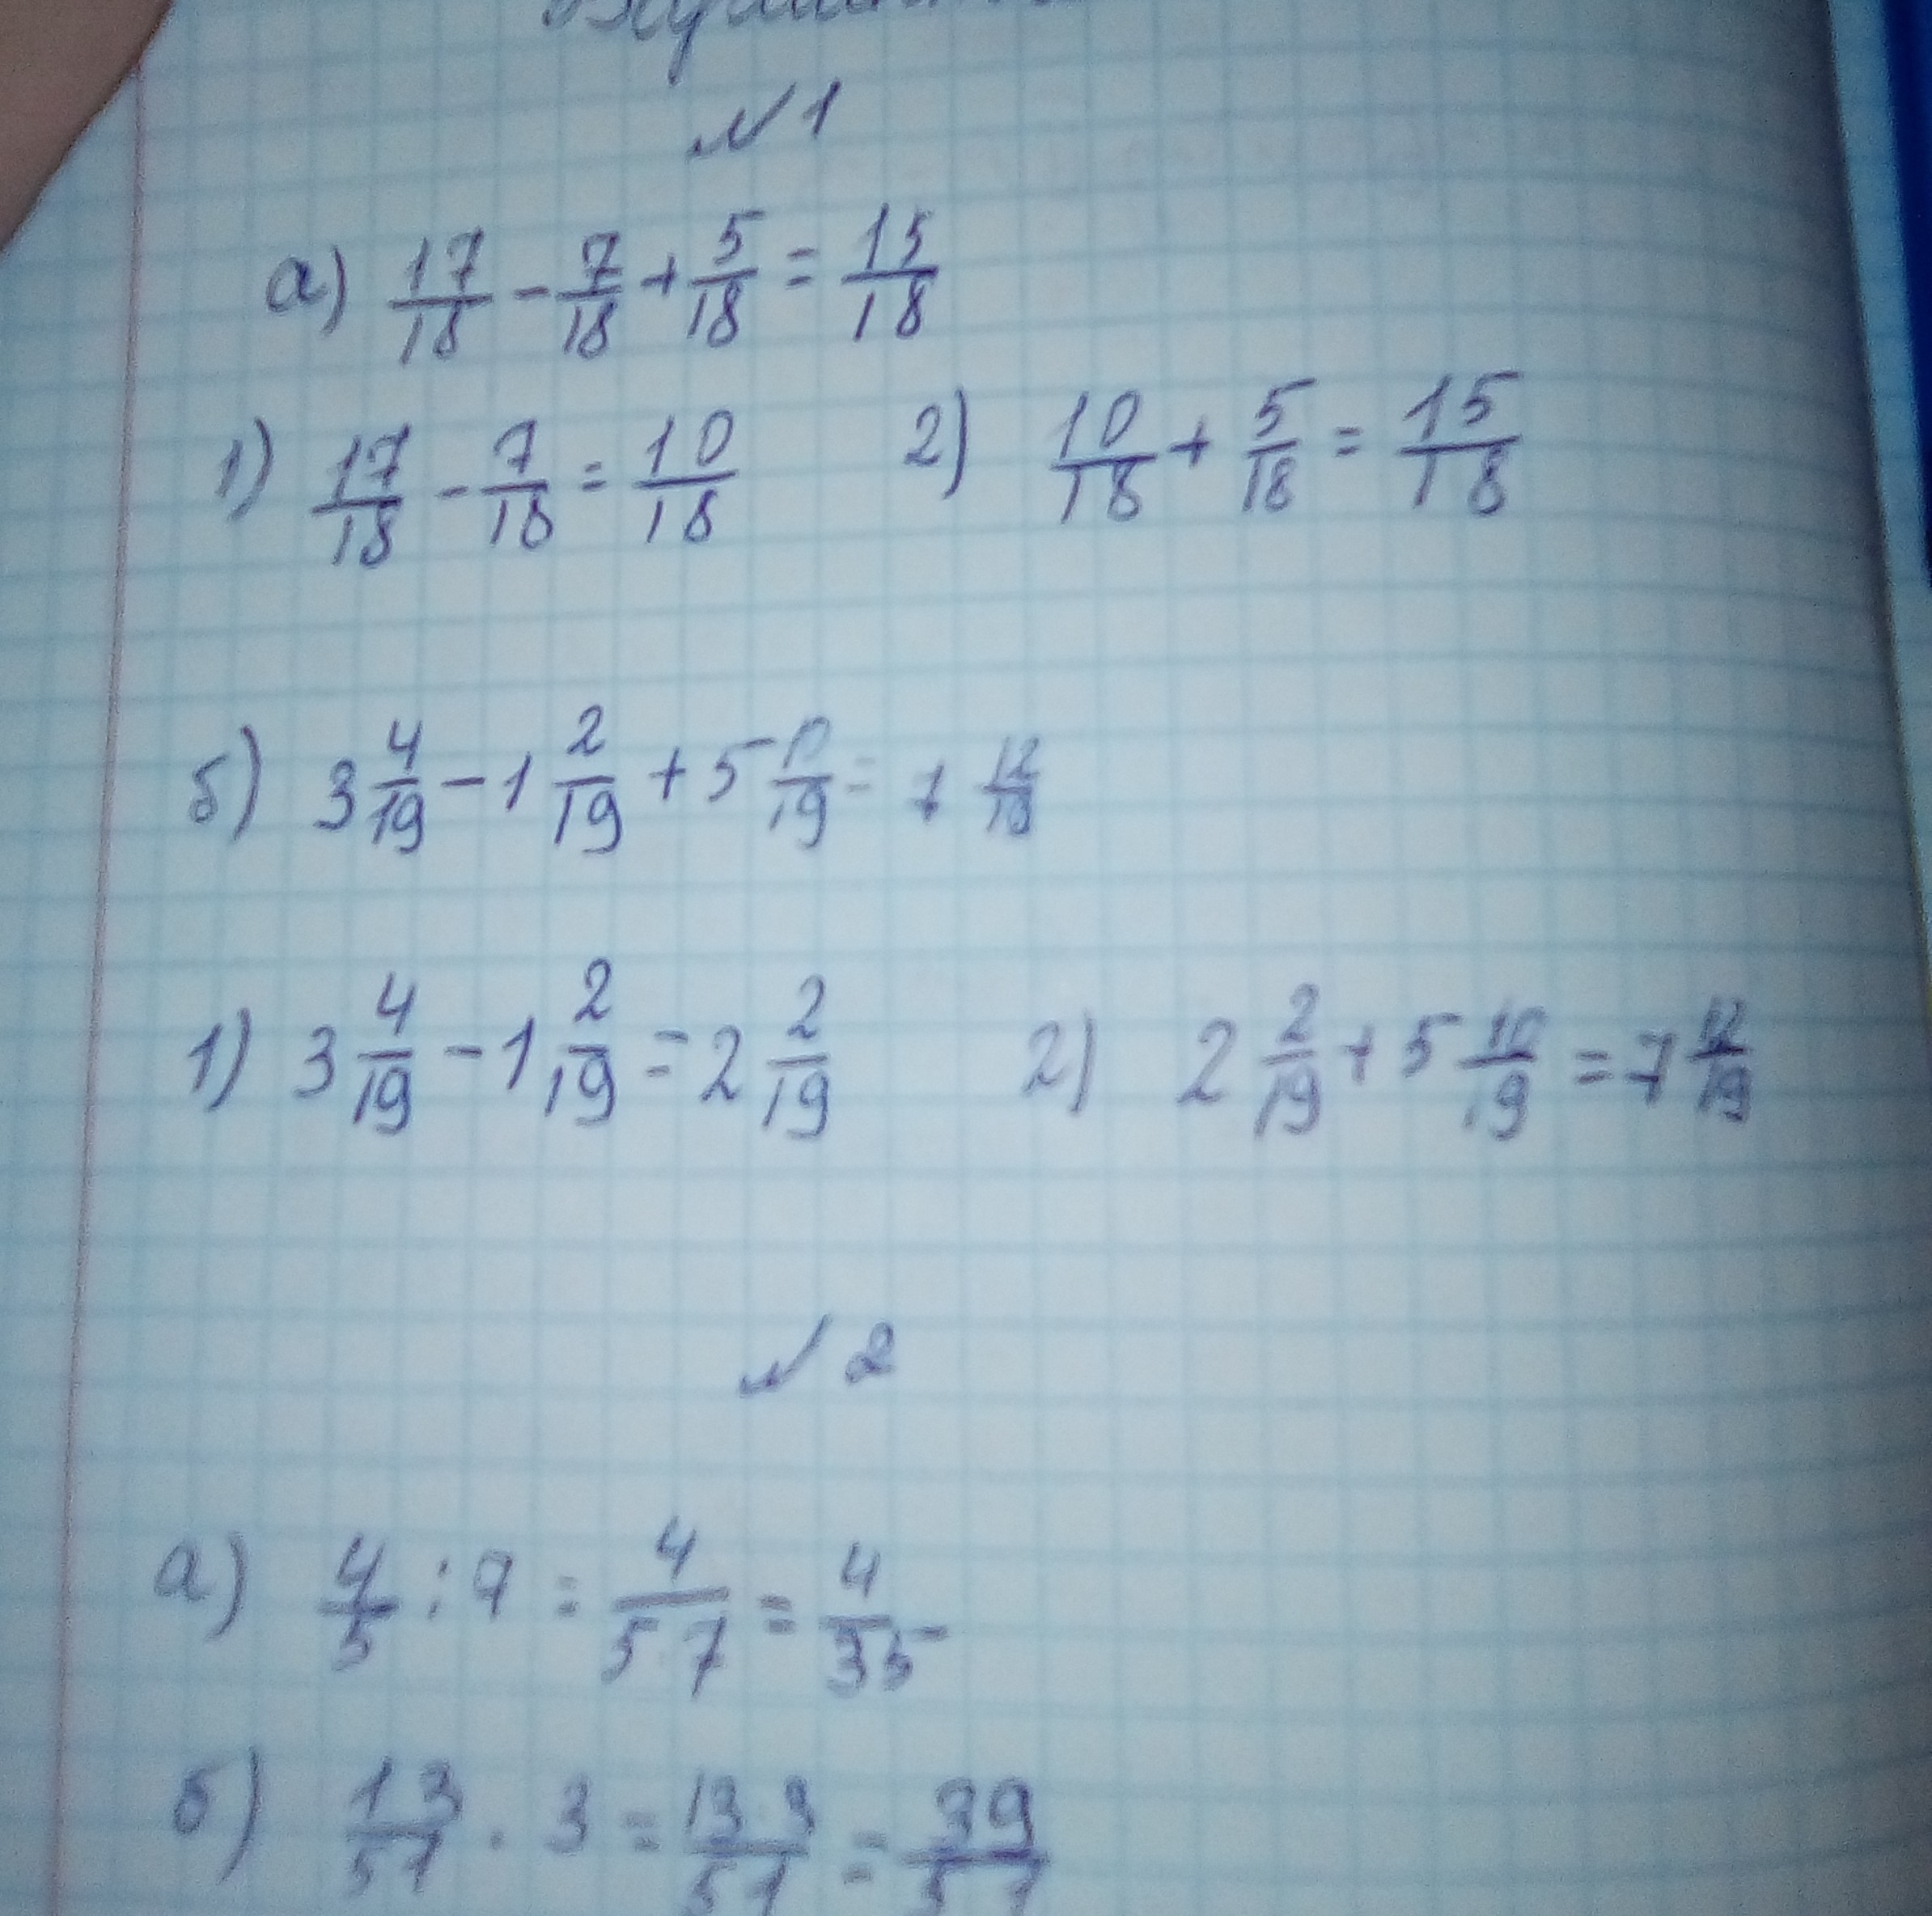 №1
а) 17/18 - 7/18 + 5/18 = 15/18
1) 17/18 - 7/18 = 10/18 2) 10/18 + 5/18 = 15/18
б) 3 4/19 - 1 2/19 + 5 10/19 = 7 12/19
1) 3 4/19 - 1 2/19 = 2 2/19 2) 2 2/19 + 5 10/19 = 7 12/19
№2
а) 4/5 : 7 = 4/5·7 = 4/35
б) 13/51 · 3 = 13·3/51 = 39/51